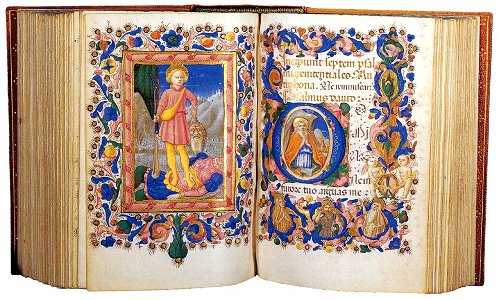 Incipiunt septem psal
mi penitentiales. An
phona. Ne reminiscari
Psalmus dauid
D
Ne in
furore tuo arguas me: